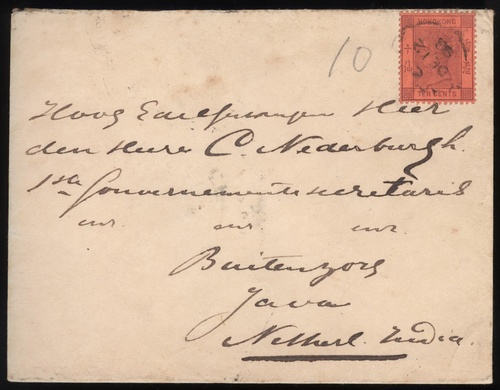 HONGKONG
TEN CENTS
10
Hoog Edelgestrengen Heer
den Heere C. Nederburgh.
1ste Gouvernements secretaris
enz. enz. enz.
Buitenzorg
Java
Netherl. India.